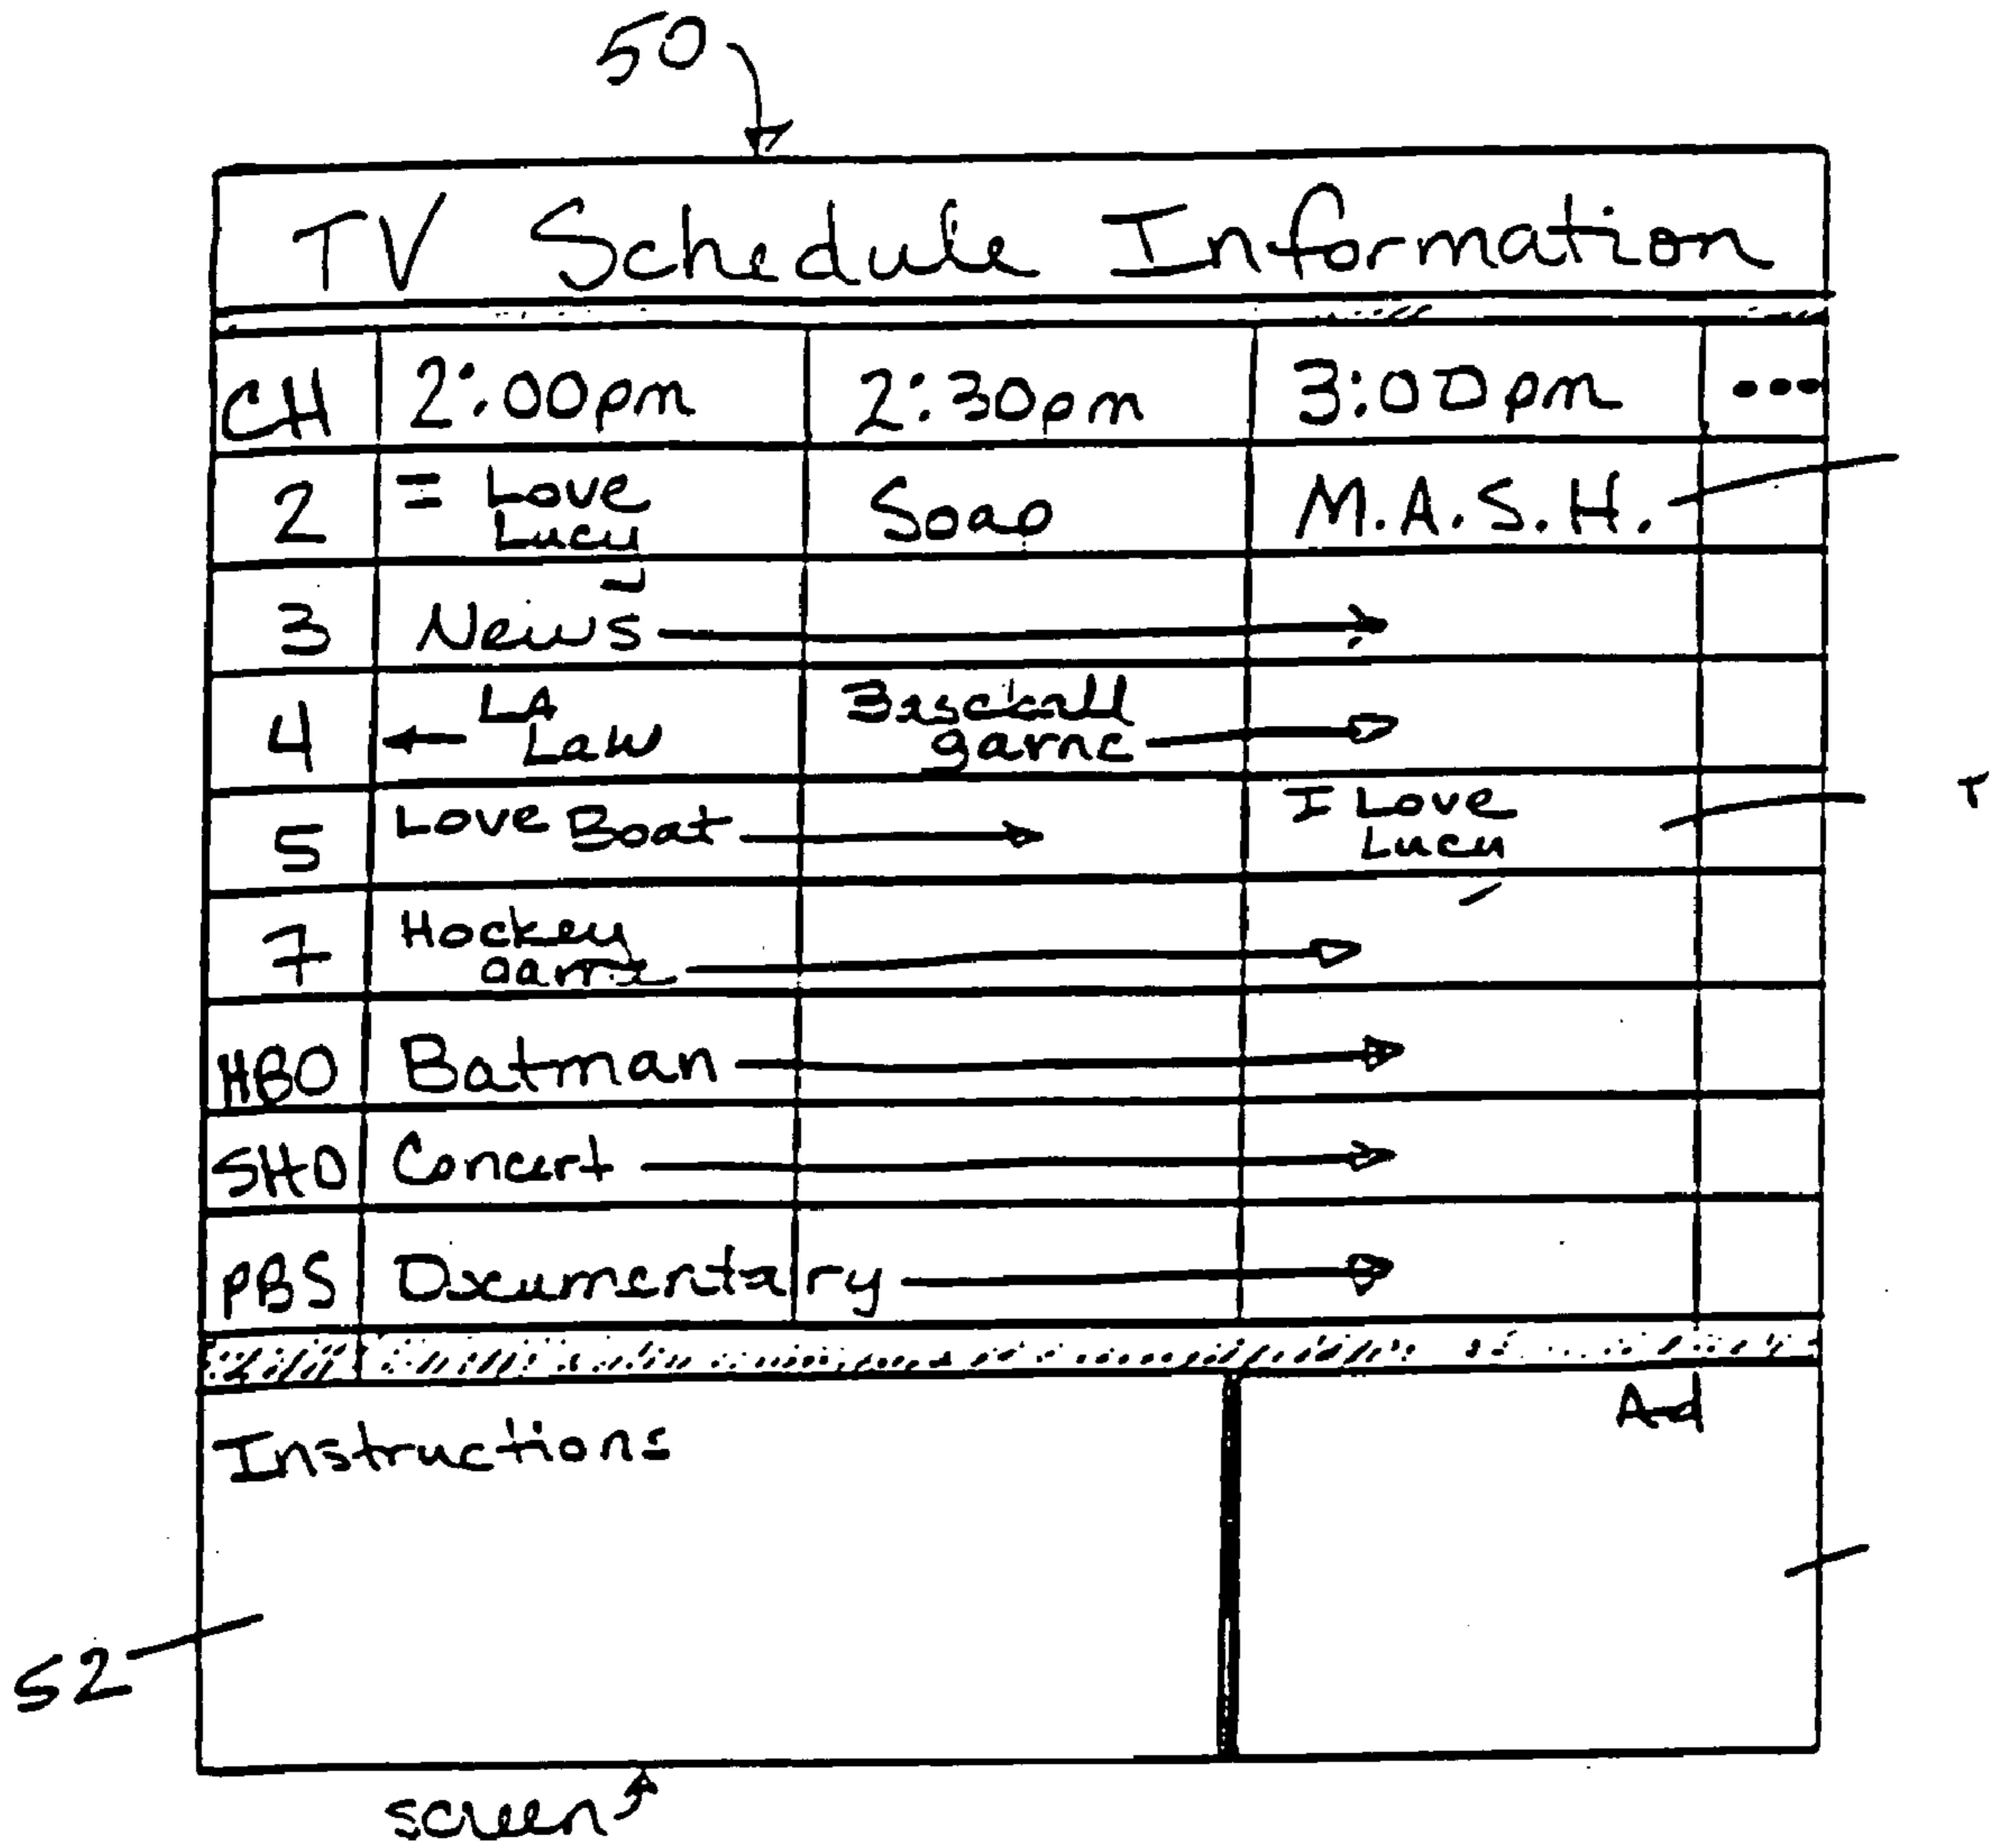 50
TV Schedule Information
CH 2:00pm 2:30pm 3:00pm •••
2 I Love Lucy Soap M.A.S.H.
3 News
4 LA Law Baseball game
5 Love Boat I Love Lucy
7 Hockey game
HBO Batman
SHO Concert
PBS Documentary
Ad
Instructions
52
screen